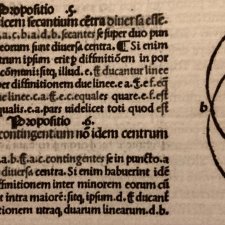 Propositio .5.
diuersa esse
.a.c.b.a.d.b. secantes se super duo pun
eorum sunt diuersa centra. ¶ Si enim
trum ipsius erit per diffinitionem in por
cōmunis: sitq. illud .e. ¶ ducantur linee
due linee .c.e. ¶ due linee .e.a. ef .e.f. eq̄
¶ e.a.c. equales quare .e.f. est
qualis .e.a. pars videlicet toti quod est
Propositio .6.
contingentium nō idem centrum
.a.b. ¶ .a.c. contingentes se in puncto .a.
diuersa centra. Si enim habuerint idē
diffinitionem inter minorem eorum cū
intra maiorē: sitq. ipsum .d. ¶ ducant
itionem utraq. duarum linearum .d.b.
b